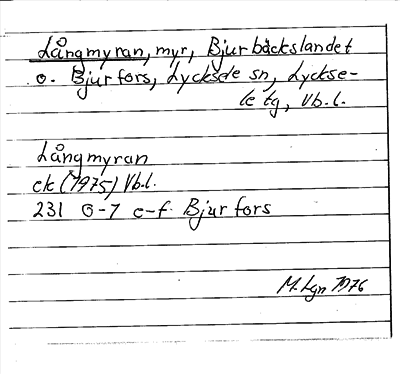 Långmyran, myr, Bjurbäckslandet
o. Bjurfors, Lycksele sn, Lyckse-
le tg, Vb.l.
Långmyran
ek (1975) Vb.l.
231 0-7 c-f Bjurfors
M. Lgn 1976